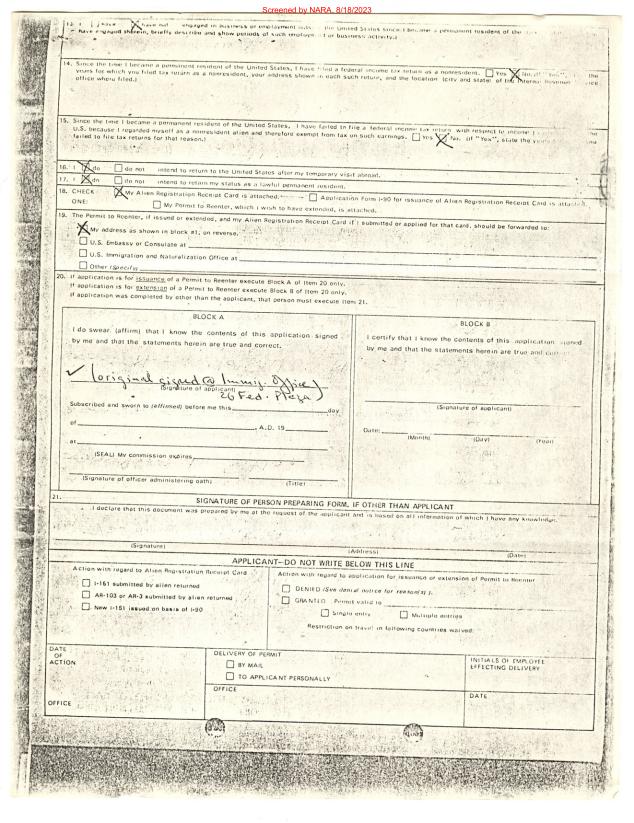 Screened by NARA, 8/18/2023
13. I have have not engaged in business or employment the United States since I became a permanent resident of the
have engaged therein, briefly describe and show periods of such employ or business activity.)
14. Since the time I became a permanent resident of the United States, I have filed a federal income tax return as a nonresident. Yes No. (If "Yes", the
years for which you filed tax return as a nonresident, your address shown in each such return, and the location (city and state) of the Internal Revenue
office where filed.)
15. Since the time I became a permanent resident of the United States, I have failed to file a federal income tax return with respect to income
U.S. because I regarded myself as a nonresident alien and therefore exempt from tax on such earnings. Yes No. (If "Yes", state the years and
failed to file tax returns for that reason.)
16. I do do not intend to return to the United States after my temporary visit abroad.
17. I do do not intend to retain my status as a lawful permanent resident.
18. CHECK My Alien Registration Receipt Card is attached. Application Form I-90 for issuance of Alien Registration Receipt Card is attached.
ONE: My Permit to Reenter, which I wish to have extended, is attached.
19. The Permit to Reenter, if issued or extended, and my Alien Registration Receipt Card if I submitted or applied for that card, should be forwarded to:
My address as shown in block #1, on reverse.
U.S. Embassy or Consulate at
U.S. Immigration and Naturalization Office at
Other (Specify)
20. If application is for issuance of a Permit to Reenter execute Block A of Item 20 only.
If application is for extension of a Permit to Reenter execute Block B of Item 20 only.
If application was completed by other than the applicant, that person must execute Item 21.
BLOCK A
I do swear (affirm) that I know the contents of this application signed
by me and that the statements herein are true and correct.
✓ (original signed @ Immig. Office)
(Signature of applicant)
26 Fed. Plaza
Subscribed and sworn to (affirmed) before me this day
of , A.D. 19
at
(SEAL) My commission expires
(Signature of officer administering oath) (Title)
BLOCK B
I certify that I know the contents of this application signed
by me and that the statements herein are true and correct
(Signature of applicant)
Date:
(Month) (Day) (Year)
21.
SIGNATURE OF PERSON PREPARING FORM, IF OTHER THAN APPLICANT
I declare that this document was prepared by me at the request of the applicant and is based on all information of which I have any knowledge.
(Signature) (Address) (Date)
APPLICANT—DO NOT WRITE BELOW THIS LINE
Action with regard to Alien Registration Receipt Card
I-151 submitted by alien returned
AR-103 or AR-3 submitted by alien returned
New I-151 issued on basis of I-90
Action with regard to application for issuance or extension of Permit to Reenter
DENIED (See denial notice for reason(s).)
GRANTED Permit valid to
Single entry Multiple entries
Restriction on travel in following countries waived:
DATE
OF
ACTION
OFFICE
DELIVERY OF PERMIT
BY MAIL
TO APPLICANT PERSONALLY
OFFICE
INITIALS OF EMPLOYEE
EFFECTING DELIVERY
DATE